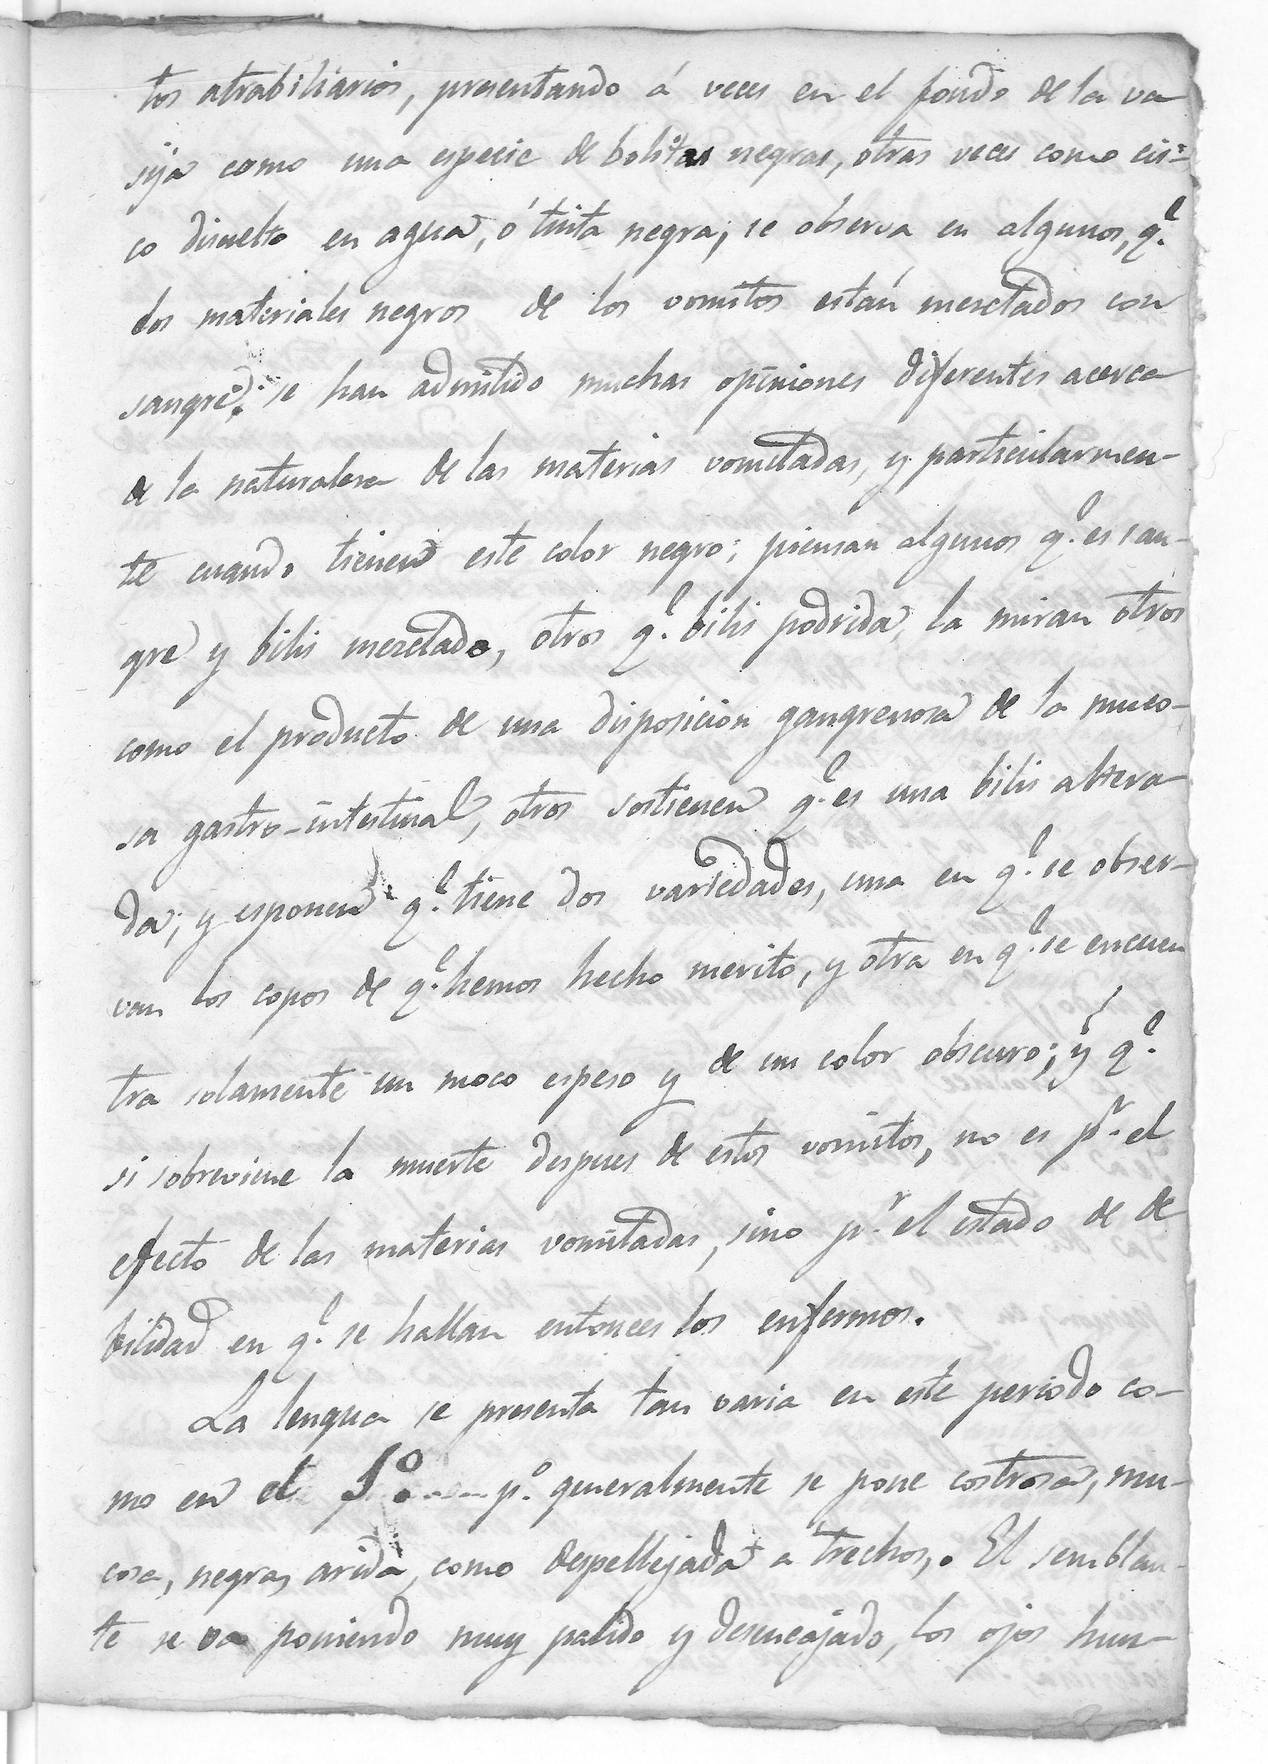 tos atrabiliarios, presentando á veces en el fondo de la va
sija como una especie de bolitas negras, otras veces como cis-
co disuelto en agua, ó tinta negra; se observa en algunos, q.e
los materiales negros de los vomitos están mesclados con
sangre: se han admitido muchas opiniones diferentes, acerca
de la naturalesa de las materias vomitadas, y particularmen-
te cuando tienen este color negro; piensan algunos q.e es san-
gre y bilis mezclado, otros q.e bilis podrida, la miran otros
como el producto de una disposicion gangrenosa de la muco-
sa gastro-intestinal, otros sostienen q.e es una bilis altera
da; y esponen q.e tiene dos variedades, una en q.e se obser-
van los copos de q.e hemos hecho merito, y otra en q.e se encuen
tra solamente un moco espeso y de un color obscuro; y q.e
si sobreviene la muerte despues de estos vomitos, no es p.r el
efecto de las materias vomitadas, sino p.r el estado de de
bilidad en q.e se hallan entonces los enfermos.
La lengua se presenta tan varia en este periodo co-
mo en el 1.o .... p.o generalmente se pone costrosa, mu-
cosa, negra, arida, como despellejada a trechos. El semblan-
te se va poniendo muy palido y desencajado, los ojos hun-